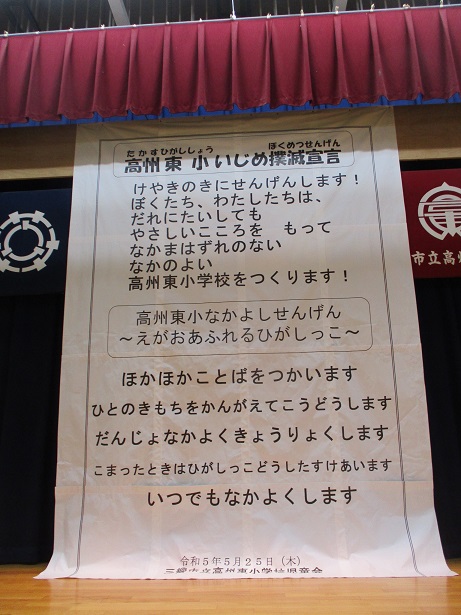 たかすひがししょう ぼくめつせんげん
高州東小いじめ撲滅宣言
けやきのきにせんげんします！
ぼくたち、わたしたちは、
だれにたいしても
やさしいこころを もって
なかまはずれのない
なかのよい
高州東小学校をつくります！
高州東小なかよしせんげん
～えがおあふれるひがしっこ～
ほかほかことばをつかいます
ひとのきもちをかんがえてこうどうします
だんじょなかよくきょうりょくします
こまったときはひがしっこどうしたすけあいます
いつでもなかよくします
令和５年５月２５日（木）
三郷市立高州東小学校児童会
市立高州